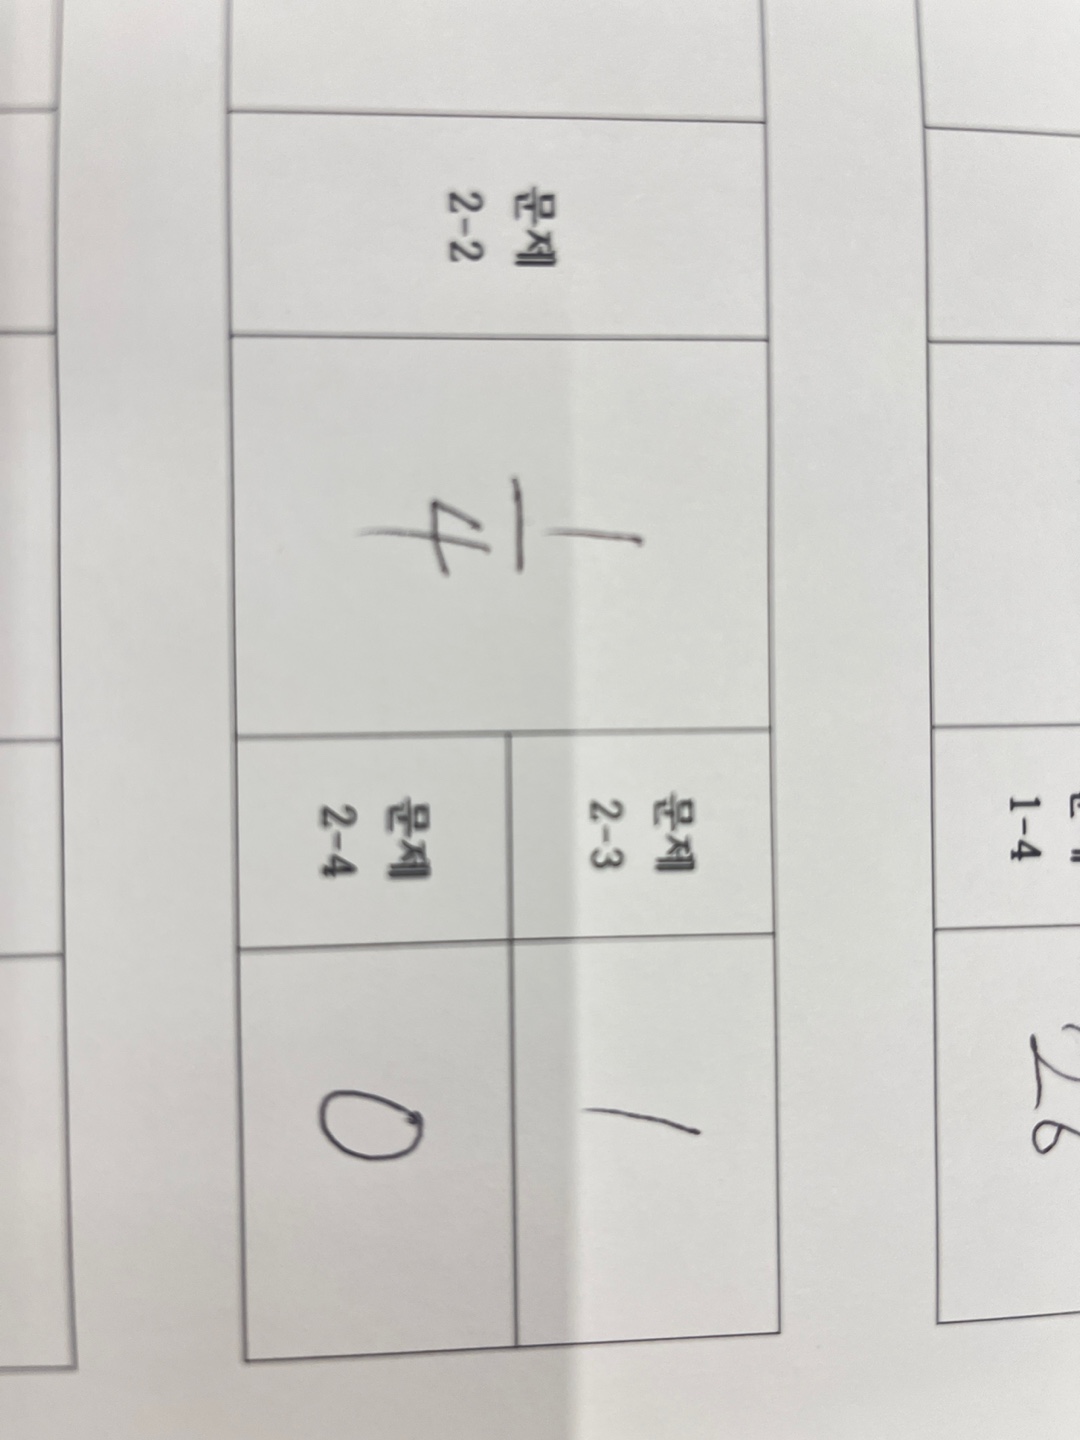 문제
1-4
26
문제
2-2
1
4
문제
2-3
1
문제
2-4
0